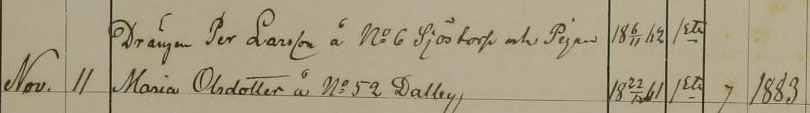 Drängen Per Larsson å No 6 Sjöstorp och Pigan 18 6/11 62 1 Ete
Nov. 11 Maria Olsdotter å No 52 Dalby, 18 22/12 61 1 Ete 7 1883